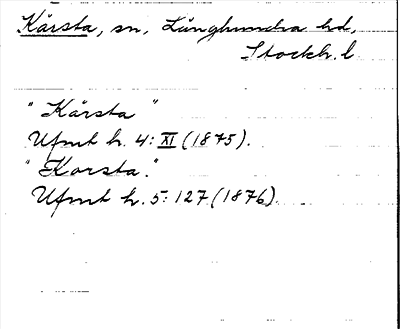 Kårsta, sn, Långhundra hd,
Stockh. l
"Kårsta"
Ufmt h. 4: XI (1875).
"Korsta."
Ufmt h. 5: 127 (1876).